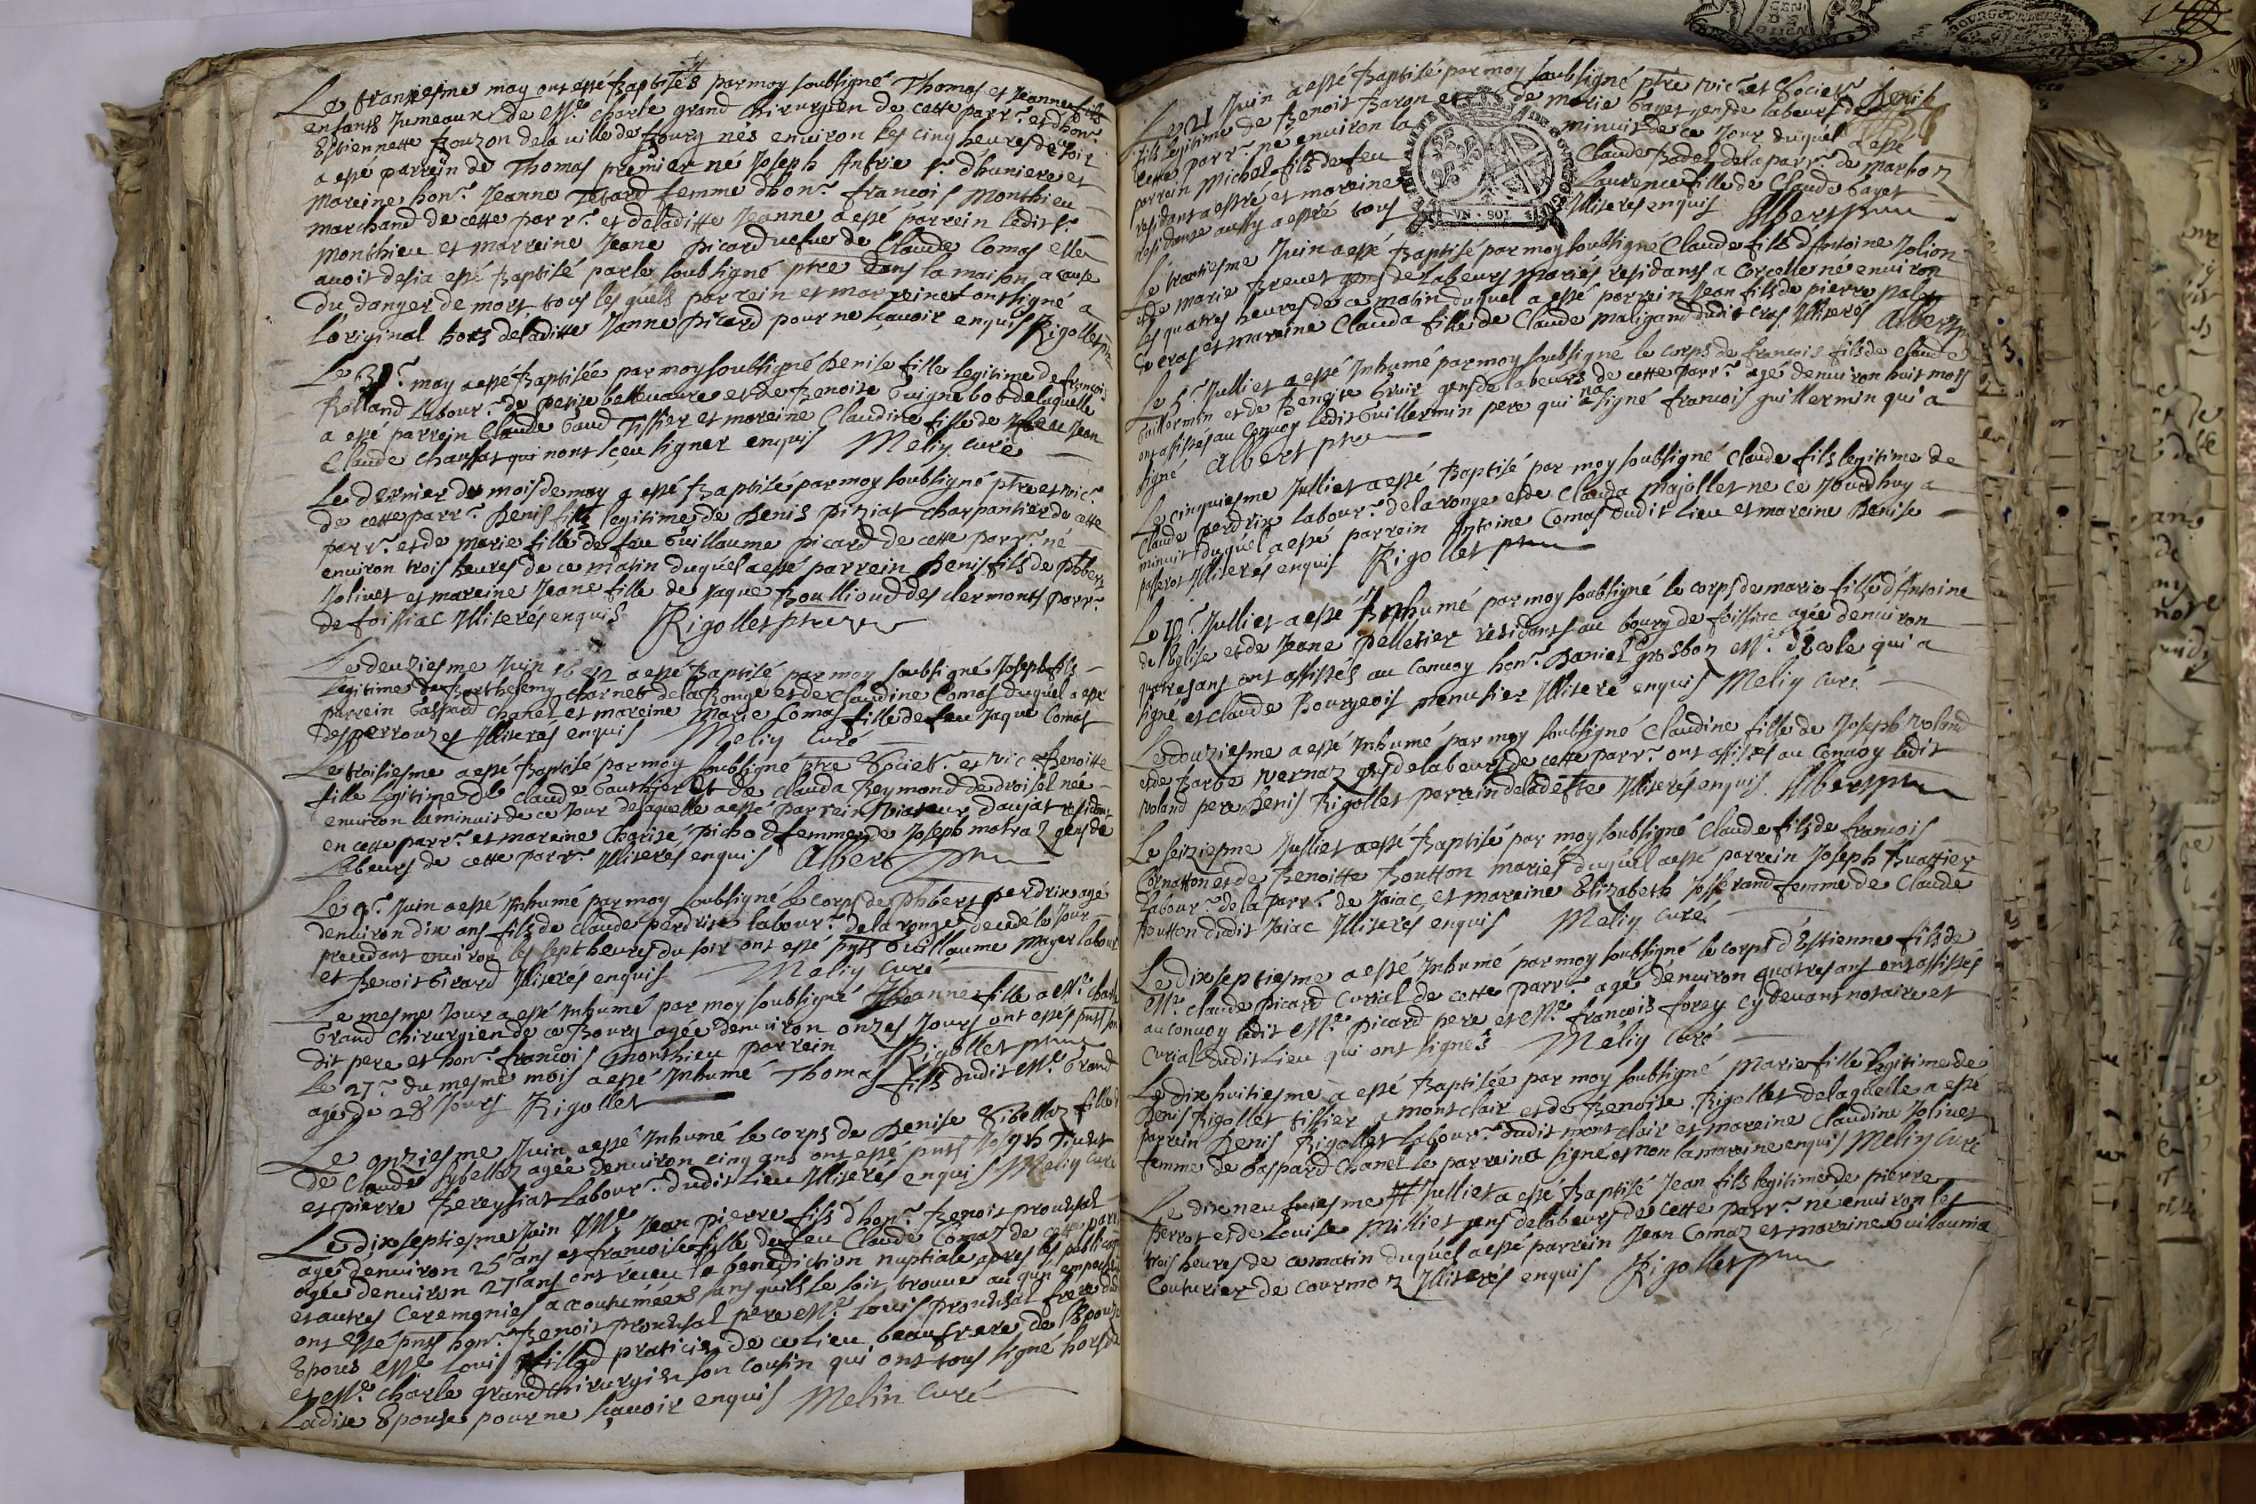 Le trantiesme may ont esté Baptisés par moy soubsigné Thomas et Jeanne
enfants Jumeaux de Mre. Charle grand Chirurgien de cette parr. et d'hon.
Estiennette Bouzon de la ville de Bourg nés environ les cinq heures de soir
a esté parrein de Thomas premier né Joseph sr. d'huniere et
Mareine hon. Jeanne Tetard femme d'hon. francois Monthieu
marchand de cette parr. et de laditte Jeanne a esté parrein ledit sr.
Monthieu et marreine Jeane picard vefue de Claude Comas elle
avoit desia esté Baptisé par le soubsigné ptre dans la maison a cause
du danger de mort tous lesquels parrein et marreines ont signé a
l'original hors de laditte Janne picard pour ne sçavoir enquis Rigollet ptre
Le 31e. may a esté Baptisée par moy soubsigné Denise fille legitime de françois
Rolland Labour. de petite bellevavre et de Benoite Guignebot de laquelle
a esté parrein Claude Gaud Tissier et mareine Claudine fille de Jean
Claude Chaussat qui n'ont sceu signer enquis Meliy curé
Le dernier du mois de may a esté Baptisé par moy soubsigné ptre et vic.
de cette parr. Denis fils legitime de Denis piziat Charpantier de cette
parr. et de Marie fille de feu Guillaume picard de cette parr. né
environ trois heures de ce matin duquel a esté parrein Denis fils de Phbert
Joliuet et mareine Jeane fille de Jaque Boullioud des clermonts parr.
de foissiac Illiterés enquis Rigollet ptre
Le deuziesme Juin 1692 a esté Baptisé par moy soubsigné Joseph fils
legitime de Barthelemy Charnet de la Ronge et de Claudine Comas duquel a esté
parrein Gaspard Chanel et mareine Marie Comas fille de feu Jaque Comas
des perrouzes Illiteres enquis Meliy Curé
Le troisiesme a esté Baptisé par moy soubsigné ptre Societ. et vic Benoitte
fille legitime de Claude Gauthier et de Clauda Reymond de droisel née
environ la minuit de ce jour de laquelle a esté parrein Viateur daujat residant
en cette parr. et mareine Charise pichod femme de Joseph matraz gens de
Labeurs de cette parr. Illiteres enquis Albert ptre
Le 9e. Juin a esté Inhumé par moy soubsigné le corps de Phbert perdrix agé
d'environ dix ans fils de Claude perdrix labour. de la ronge decedé le Jour
precedant environ les sept heures du soir ont esté pnts Guillaume Moyer labour
et Benoit Girard Illiterés enquis Meliy Curé
Le mesme Jour a esté Inhumé par moy soubsigné Jeanne fille a Mre. Charle
Grand Chirurgien de ce Bourg agée d'environ onzes Jours ont estés pnts son
dit pere et hon. françois Monthieu parrein Rigollet ptre
Le 27e. du mesme mois a esté Inhumé Thomas fils dudit Mre. Grand
agé de 28 Jours Rigollet
Le onziesme Juin a esté Inhumé le corps de Denise Sibellaz fille
de Claude Sybellaz agée d'environ cinq ans ont esté pnts Joseph
et pierre Bereyziat Labour. dudit Lieu Illiterés enquis Meliy Curé
Le dix septiesme Juin Mre Jean pierre fils d'hon. Benoit
agé d'environ 25 ans et francoise fille de feu Claude Comas de cette parr.
agée d'environ 27 ans ont receu la benediction nuptiale apres les publicaons
et autres Ceremonies accoutumées sans quils se soit trouve aucun empech
ont esté pnts hon. Benoit pere Mre. Louis frere dud
Epoux Mre. Louis Millod praticien de ce lieu beaufrere de l'Epouze
et Mre. Charle grand Chirurgien son cousin qui ont tous signé hors de
Ladite Epouse pour ne sçavoir enquis Melin Curé
Le 21 Juin a esté Baptisé par moy soubsigné ptre vic. et Societ. Denis
fils legitime de Benoit Baron et de marie Gayet gens de labeurs de
cette parr. né environ la minuit de ce Jour duquel a esté
parrein Michel fils de feu Claude Badel de la parr. de Marboz
residant a estré et mareine Laurence fille de Claude Gayet
residante aussy a estré tous Illiteres enquis Albert ptre
GENERALITE DE BOURGOGNE
UN · SOL
Le trantiesme Juin a esté Baptisé par moy soubsigné Claude fils d'Antoine Jolion
et de Marie Brevet gens de Labeurs Mariés residants a Corcelle né environ
les quatres heures de ce matin duquel a esté parrein Jean fils de pierre palet
Cras et mareine Clauda fille de Claude Maligand dudit Cras Illiterés Albert ptre
Le 5e. Julliet a esté Inhumé par moy soubsigné le corps de francois fils de Claude
Guillermin et de Benoite Gruir gens de labeurs de cette parr. agé denuiron huit mois
ont assistés au Convoy ledit Guillermin pere qui na signé francois guillermin qui a
signé Albert ptre
Le cinquiesme Julliet a esté Baptisé par moy soubsigné Claude fils legitime de
Claude perdrix labour. de la ronge et de Clauda Majollet ne ce Jourdhuy a
minuit duquel a esté parrein Antoine Comas dudit Lieu et mareine Denise
passerot Illiterés enquis Rigollet ptre
Le 10e. Julliet a esté Inhumé par moy soubsigné le corps de marie fille d'Antoine
de l'Eglise et de Jeane Pelletier residants au bourg de foissiac agée d'environ
quatres ans ont assistés au convoy hon. Daniel Grosbon Mre. d'Ecole qui a
signé et Claude Bourgeois menusier Illiteré enquis Meliy Curé
Le douziesme a esté Inhumé par moy soubsigné Claudine fille de Joseph voland
et de Barbe vernaz gens de labeurs de cette parr. ont assistés au Convoy ledit
voland pere Denis Rigollet parrein de la defte Illiterés enquis Albert ptre
Le seiziesme Julliet a esté Baptisé par moy soubsigné Claude fils de francois
Cornatton et de Benoitte Boutton mariés duquel a esté parrein Joseph Buattier
Labour. de la parr. de Jaiac et mareine Elizabeth Josserand femme de Claude
Boutton dudit Jaiac Illiterés enquis Meliy Curé
Le dixseptiesme a esté Inhumé par moy soubsigné le corps d'Estienne fils de
Mre. Claude picard Curial de cette parr. agé denuiron quatres ans ont assistés
au convoy ledit Mre. picard pere et Mre. francois forey cy devant notaire et
Curial dudit Lieu qui ont signés Meliy Curé
Le dix huitiesme a esté Baptisée par moy soubsigné Marie fille legitime de
Denis Rigollet tissier a montclair et de Benoite Rigollet de laquelle a esté
parrein Denis Rigollet Labour. dudit montclair et mareine Claudine Joliuet
femme de Gaspard Chanel le parrein a signé et non la mareine enquis Meliy Curé
Le dixneufuiesme Julliet a esté Baptisé Jean fils legitime de pierre
Perrot et de Louise Milliet gens de labeurs de cette parr. né environ les
trois heures de ce matin duquel a esté parrein Jean Comas et mareine Guillauma
Couturier de Courmoz Illiterés enquis Rigollet ptre